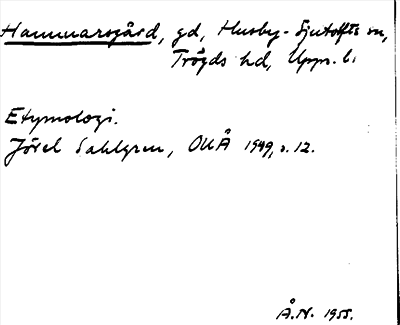 Hammarsgård, gd, Husby-Sjutolfts sn,
Trögds hd, Upps. l.
Etymologi.
Jöran Sahlgren, OUÅ 1949, s. 12.
Å.N. 1955.